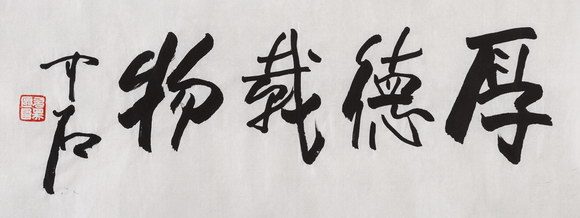 厚德载物
中石